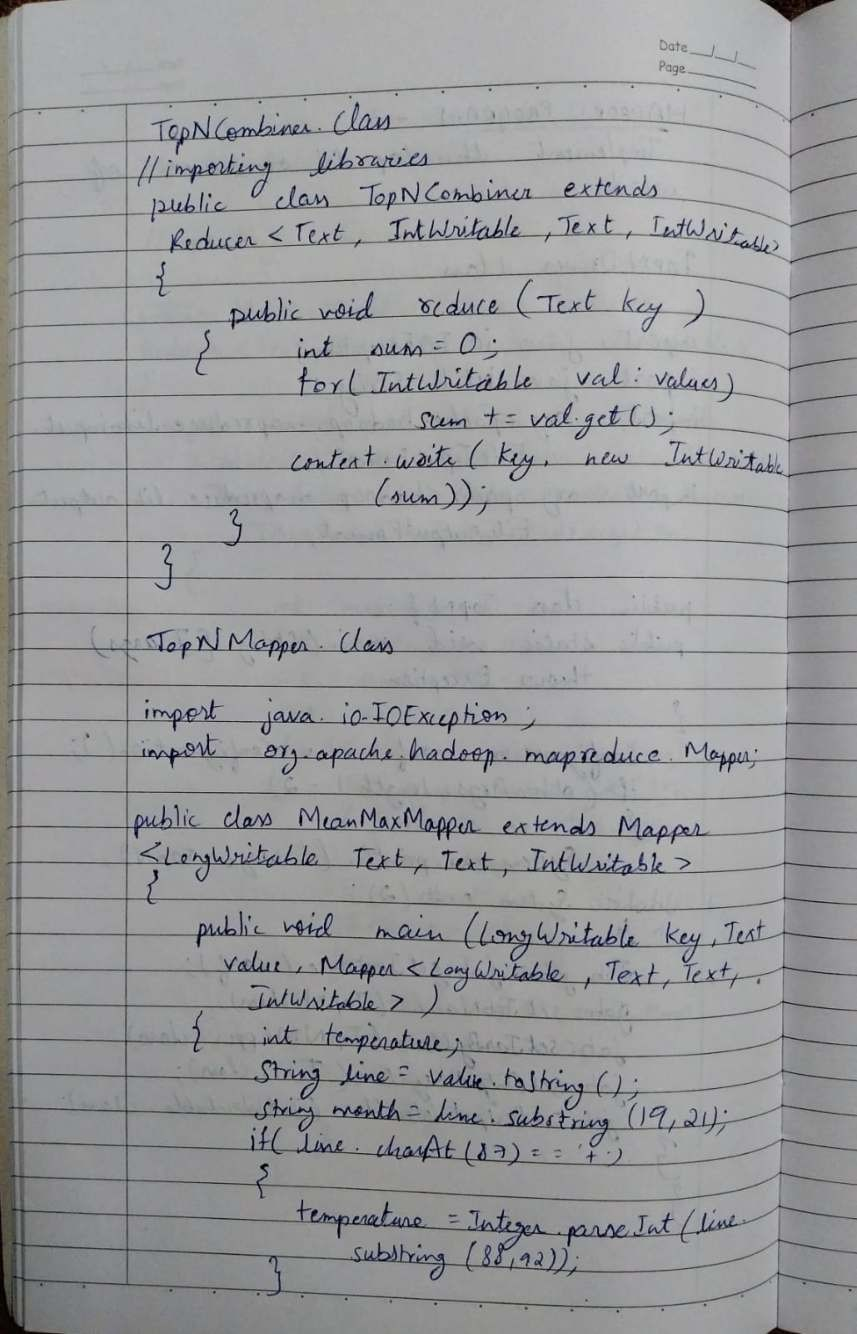 Date
Page
TopNCombiner. Class
// importing libraries
public class TopNCombiner extends
Reducer < Text, IntWritable, Text, IntWritable>
{
public void reduce ( Text key )
{ int sum = 0;
for( IntWritable val : values)
sum += val.get();
context.write ( key, new IntWritable
(sum));
}
}
TopNMapper. Class
import java.io.IOException;
import org.apache.hadoop.mapreduce.Mapper;
public class MeanMaxMapper extends Mapper
<LongWritable Text, Text, IntWritable>
{
public void main (LongWritable key, Text
value, Mapper <LongWritable, Text, Text,
IntWritable > )
{ int temperature;
String line = value.toString();
String month = line.substring (19, 21);
if( line.charAt (87) == '+')
{
temperature = Integer.parseInt (line.
substring (88, 92));
}